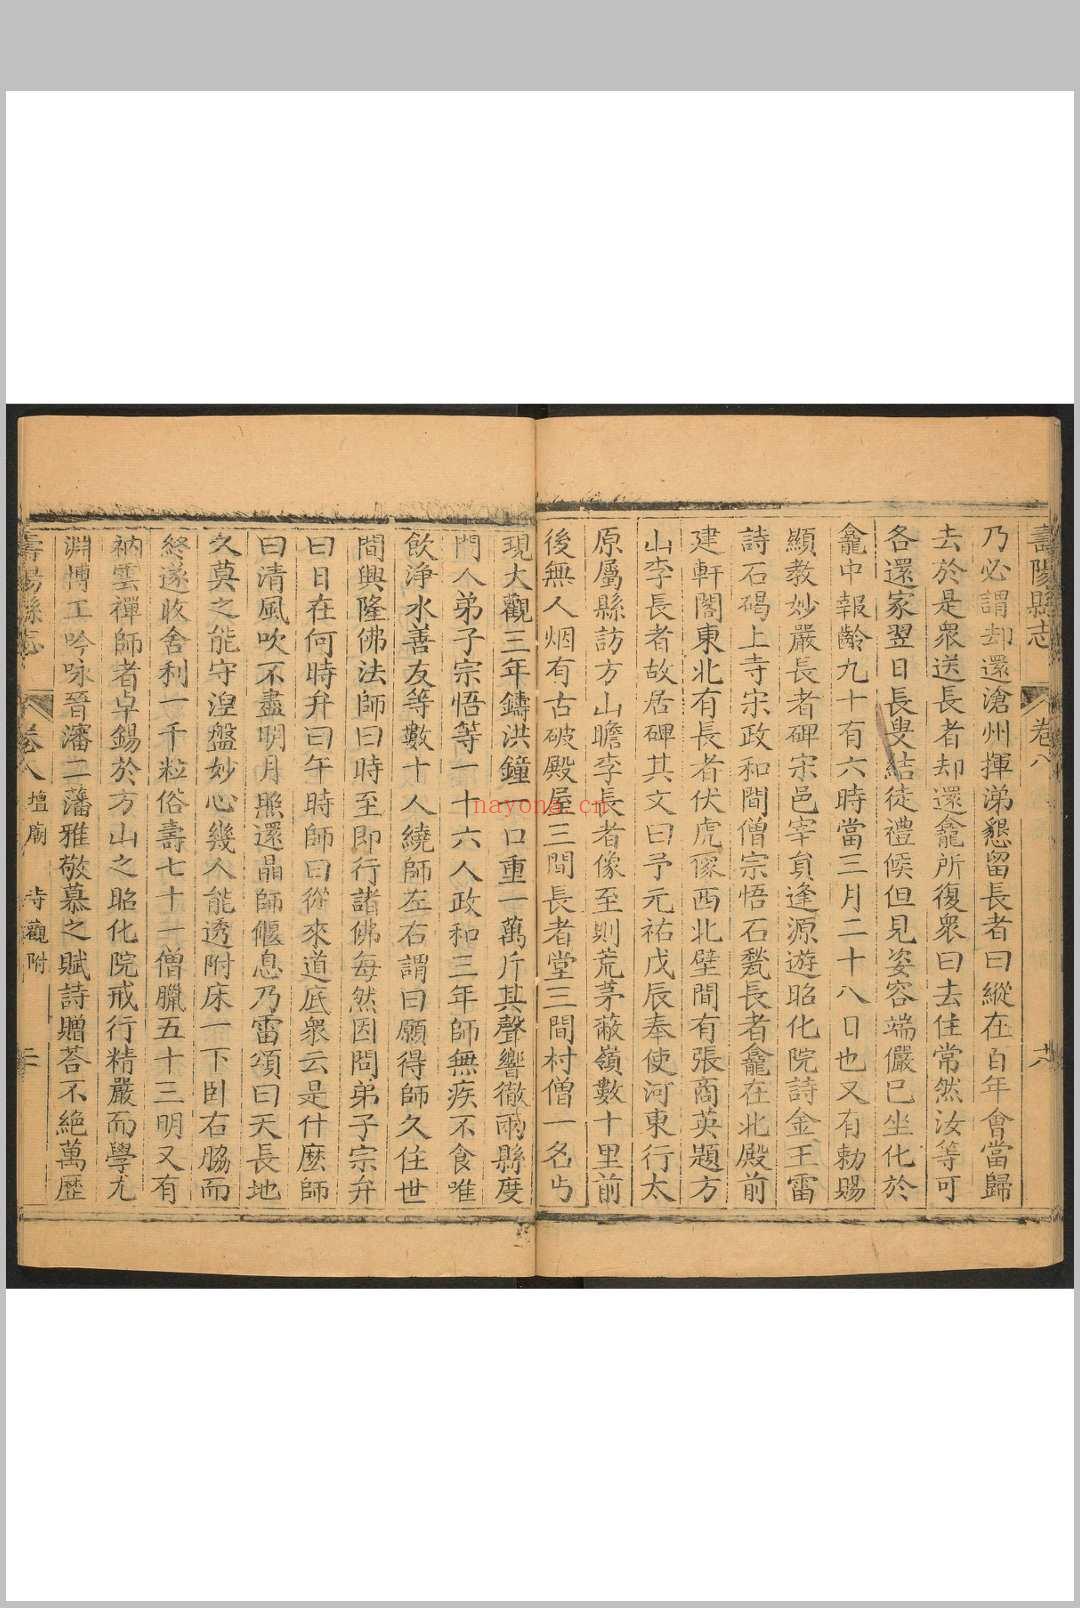 壽陽縣志
卷八
乃必謂却還滄州揮涕懇留長者曰縱在百年會當歸
去於是眾送長者却還龕所復眾曰去住常然汝等可
各還家翌日長叟結徒禮候但見姿容端儼已坐化於
龕中報齡九十有六時當三月二十八日也又有勅賜
顯教妙嚴長者碑宋邑宰負逢源遊昭化院詩金王雷
詩石碣上寺宋政和間僧宗悟石甃長者龕在北殿前
建軒閣東北有長者伏虎像西北壁間有張商英題方
山李長者故居碑其文曰予元祐戊辰奉使河東行太
原屬縣訪方山瞻李長者像至則荒茅蔽嶺數十里前
後無人烟有古破殿屋三間長者堂三間村僧一名丐
現大觀三年鑄洪鐘一口重一萬斤其聲響徹兩縣度
門人弟子宗悟等一十六人政和三年師無疾不食唯
飲淨水善友等數十人繞師左右謂曰願得師久住世
間興隆佛法師曰時至即行諸佛每然因問弟子宗弁
曰日在何時弁曰午時師曰從來道底眾云是什麽師
曰清風吹不盡明月照還晶師偃息乃雷頌曰天長地
久莫之能守湼盤妙心幾人能透附床一下臥右脇而
終遂收舍利一千粒俗壽七十一僧臘五十三明又有
衲雲禪師者卓錫於方山之昭化院戒行精嚴而學尤
淵博工吟咏晉瀋二藩雅敬慕之賦詩贈荅不絕萬歷
壽陽縣志
卷八
壇廟
寺觀附
nayona.cn